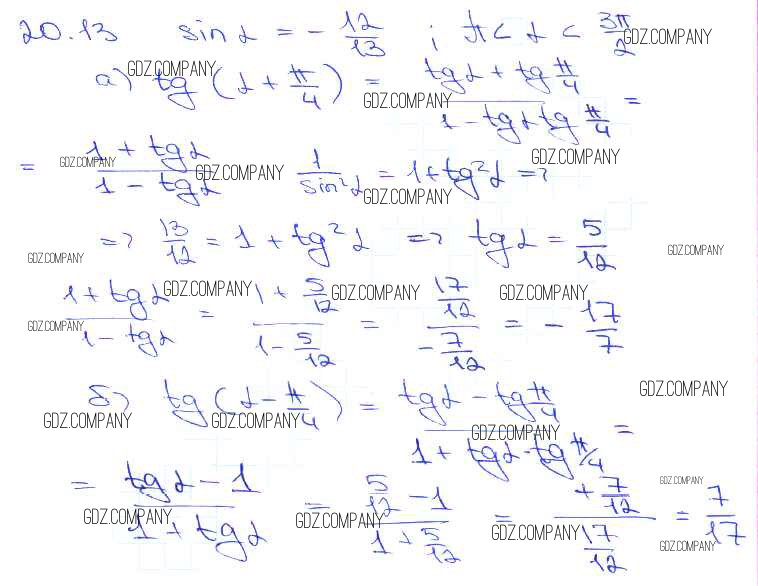 20.13 sin α = - 12/13 ; π < α < 3π/2
GDZ.COMPANY
а) tg (α + π/4) = (tg α + tg π/4)/(1 - tg α tg π/4) =
GDZ.COMPANY GDZ.COMPANY GDZ.COMPANY
= (1 + tg α)/(1 - tg α) 1/sin²α = 1 + tg²α =>
GDZ.COMPANY GDZ.COMPANY GDZ.COMPANY
=> 13/12 = 1 + tg²α => tg α = 5/12
GDZ.COMPANY GDZ.COMPANY
(1 + tg α)/(1 - tg α) = (1 + 5/12)/(1 - 5/12) = (17/12)/(- 7/12) = - 17/7
GDZ.COMPANY GDZ.COMPANY GDZ.COMPANY GDZ.COMPANY
б) tg (α - π/4) = (tg α - tg π/4)/(1 + tg α · tg π/4) =
GDZ.COMPANY GDZ.COMPANY GDZ.COMPANY GDZ.COMPANY
= (tg α - 1)/(1 + tg α) = (5/12 - 1)/(1 + 5/12) = (+ 7/12)/(17/12) = 7/17
GDZ.COMPANY GDZ.COMPANY GDZ.COMPANY GDZ.COMPANY GDZ.COMPANY